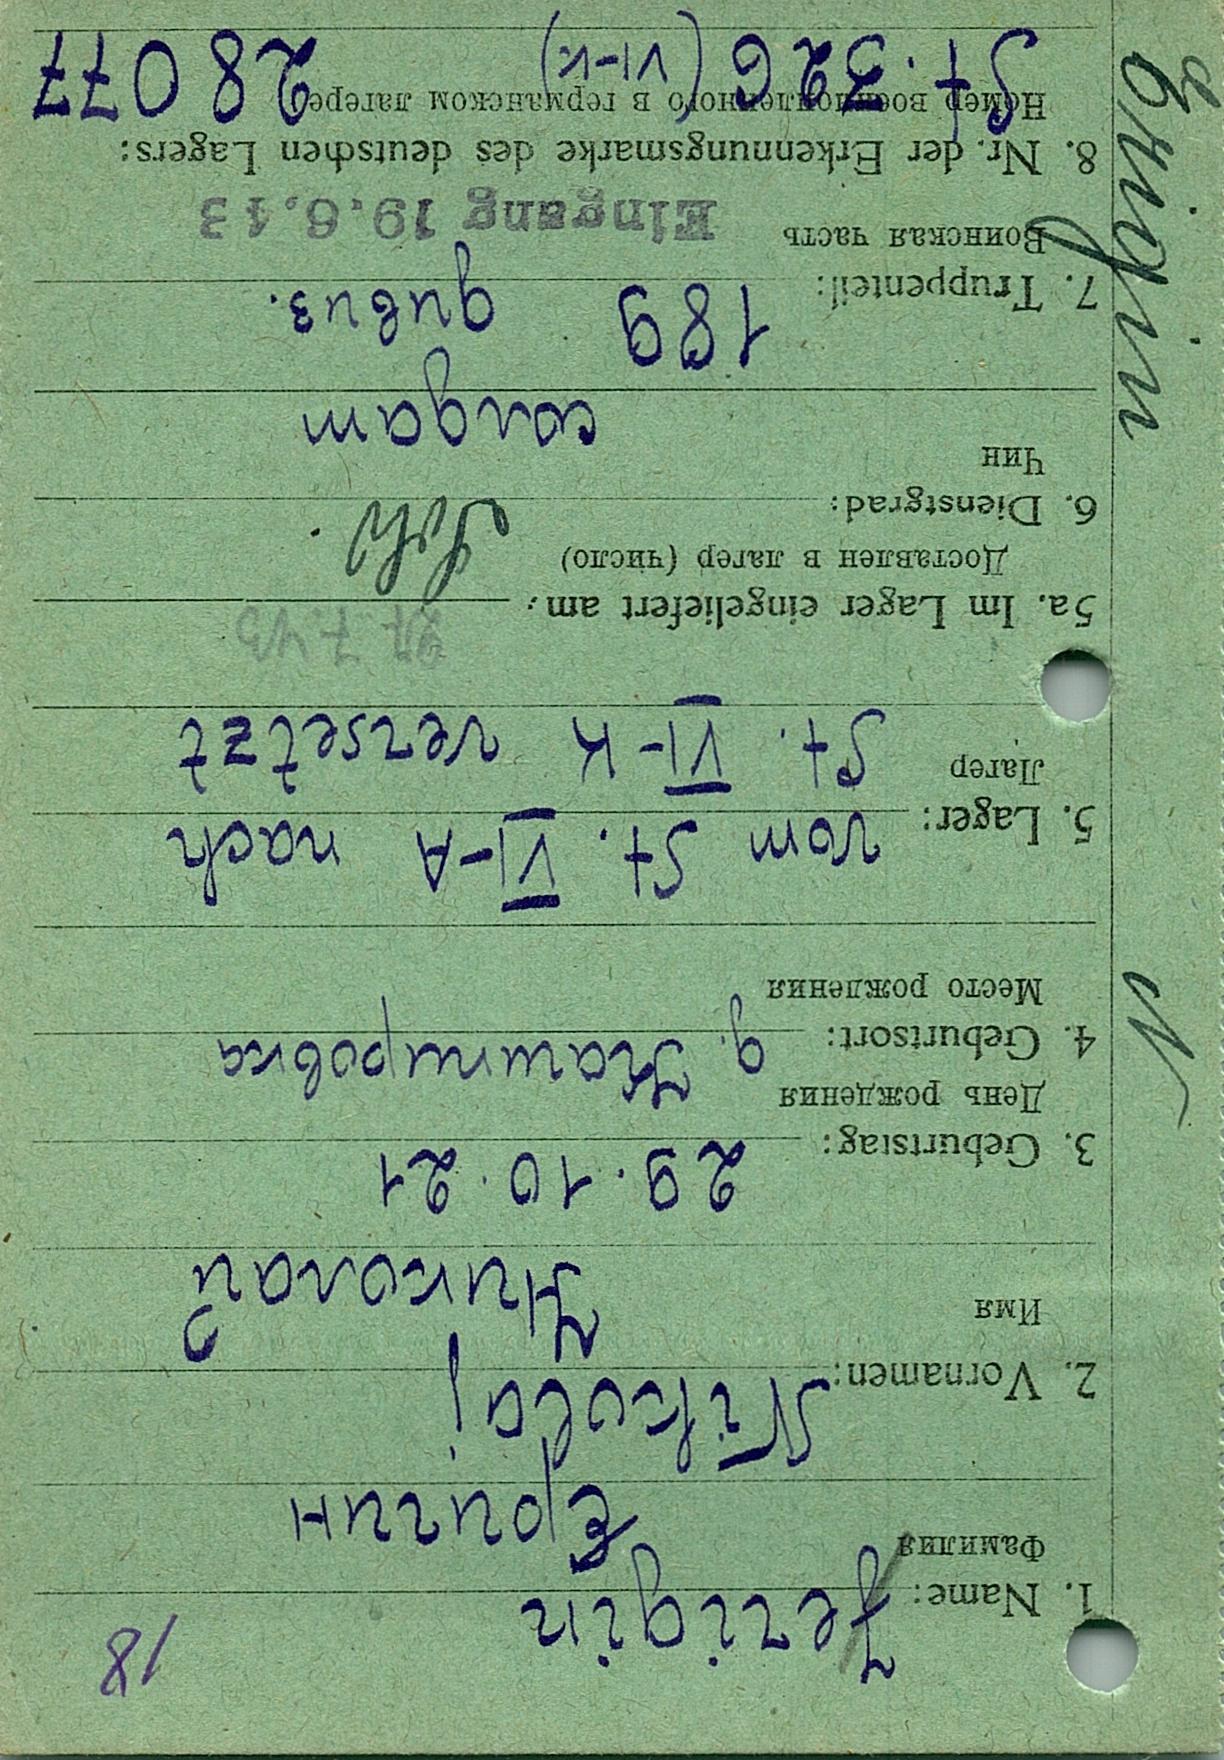 18
1. Name: Jerigin
Фамилия Еригин
2. Vornamen: Nikolaj
Имя Николай
3. Geburtstag: 29.10.21
День рождения
4. Geburtsort: д. Кашировка
Место рождения
5. Lager: vom St. VI-A nach
Лагер St. VI-K versetzt
5a. Im Lager eingeliefert am:
Доставлен в лагер (число)
6. Dienstgrad:
Чин солдат
7. Truppenteil: 189 дивиз.
Воинская часть Eingang 19.6.43
8. Nr. der Erkennungsmarke des deutschen Lagers:
Номер военнопленного в германском лагере
St. 326 (VI-K) 28077
Erigin
N